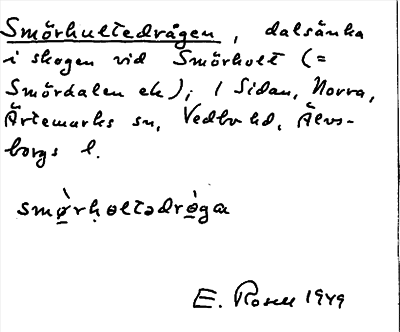 Smörhultedrågen, dalsänka
i skogen vid Smörhult (=
Smördalen ek); i Sidan, Norra,
Ärtemarks sn, Vedbo hd, Älvs-
borgs l.
smø̀rhøltədrò̱ga
E. Rosell 1949